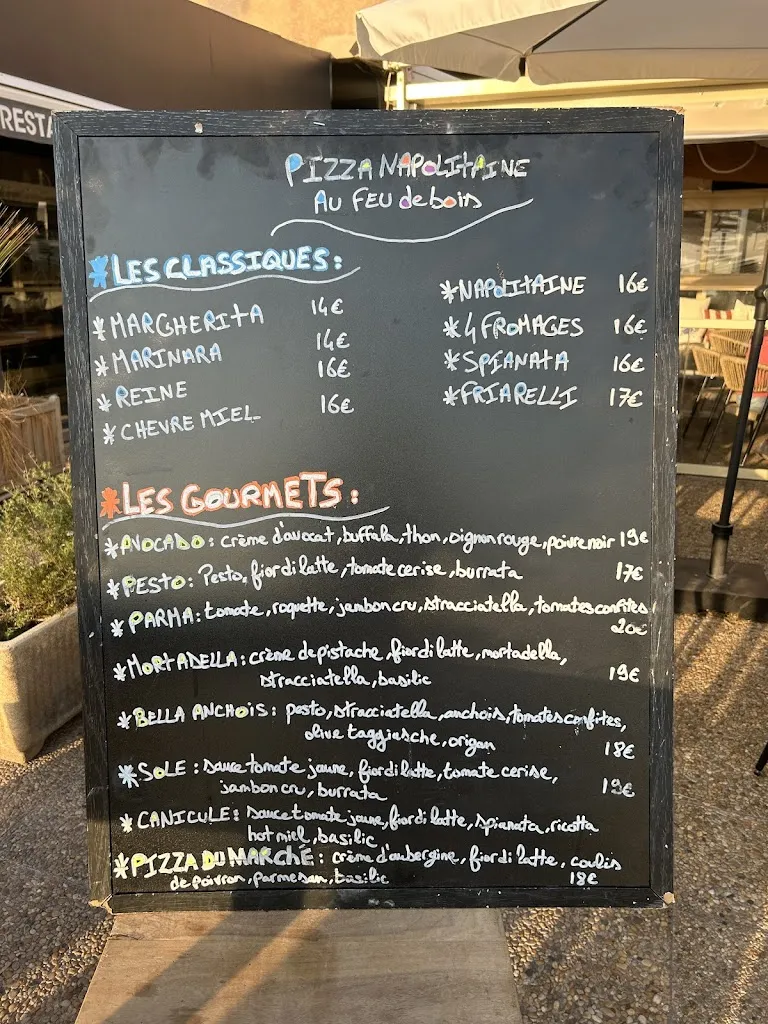 RESTA
PIZZA NAPOLITAINE
AU FEU de bois
*LES CLASSIQUES:
*MARGHERITA 14€
*MARINARA 14€
*REINE 16€
*CHEVRE MIEL 16€
*NAPOLITAINE 16€
*4 FROMAGES 16€
*SPIANATA 16€
*FRIARELLI 17€
*LES GOURMETS:
*AVOCADO: crème d'avocat, buffala, thon, oignon rouge, poivre noir 19€
*PESTO: Pesto, fior di latte, tomate cerise, burrata 17€
*PARMA: tomate, roquette, jambon cru, stracciatella, tomates confites
20€
*MORTADELLA: crème de pistache, fior di latte, mortadella,
stracciatella, basilic 19€
*BELLA ANCHOIS: pesto, stracciatella, anchois, tomates confites,
olive taggiasche, origan 18€
*SOLE: sauce tomate jaune, fior di latte, tomate cerise,
jambon cru, burrata 19€
*CANICULE: sauce tomate jaune, fior di latte, spianata, ricotta
hot miel, basilic
*PIZZA DU MARCHÉ: crème d'aubergine, fior di latte, coulis
de poivron, parmesan, basilic 18€